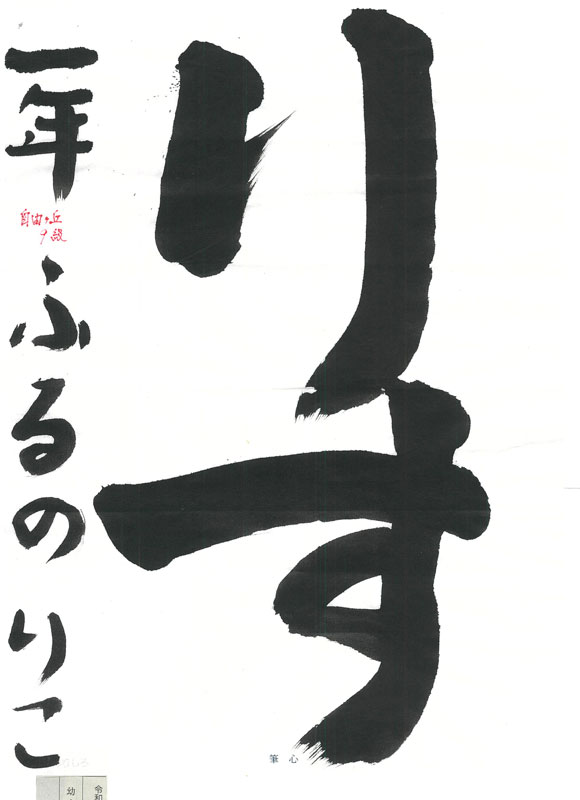 りす
一年 ふるの りこ
自由ヶ丘
9級
筆心
令和
幼